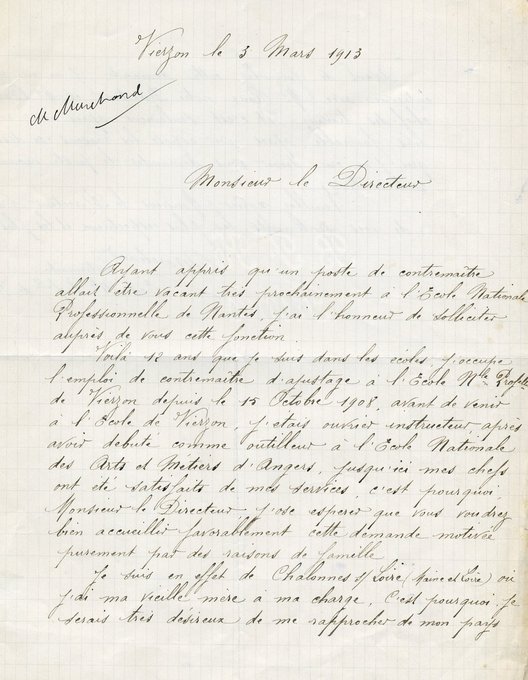 Vierzon le 3 Mars 1913
M Marchand
Monsieur le Directeur
Ayant appris qu'un poste de contremaître
allait être vacant très prochainement à l'Ecole Nationale
Professionnelle de Nantes, j'ai l'honneur de solliciter
auprès de vous cette fonction.
Voilà 12 ans que je suis dans les ecoles, j'occupe
l'emploi de contremaître d'ajustage à l'Ecole Nle Profelle
de Vierzon depuis le 15 Octobre 1908, avant de venir
à l'Ecole de Vierzon, j'etais ouvrier instructeur, après
avoir debuté comme outilleur à l'Ecole Nationale
des Arts et Métiers d'Angers, jusqu'ici mes chefs
ont été satisfaits de mes services, c'est pourquoi,
Monsieur le Directeur, j'ose esperer que vous voudrez
bien accueillir favorablement cette demande motivée
purement par des raisons de famille
Je suis en effet de Chalonnes s/ Loire (Maine et Loire) où
j'ai ma vieille mère a ma charge, C'est pourquoi je
serais très désireux de me rapprocher de mon pays